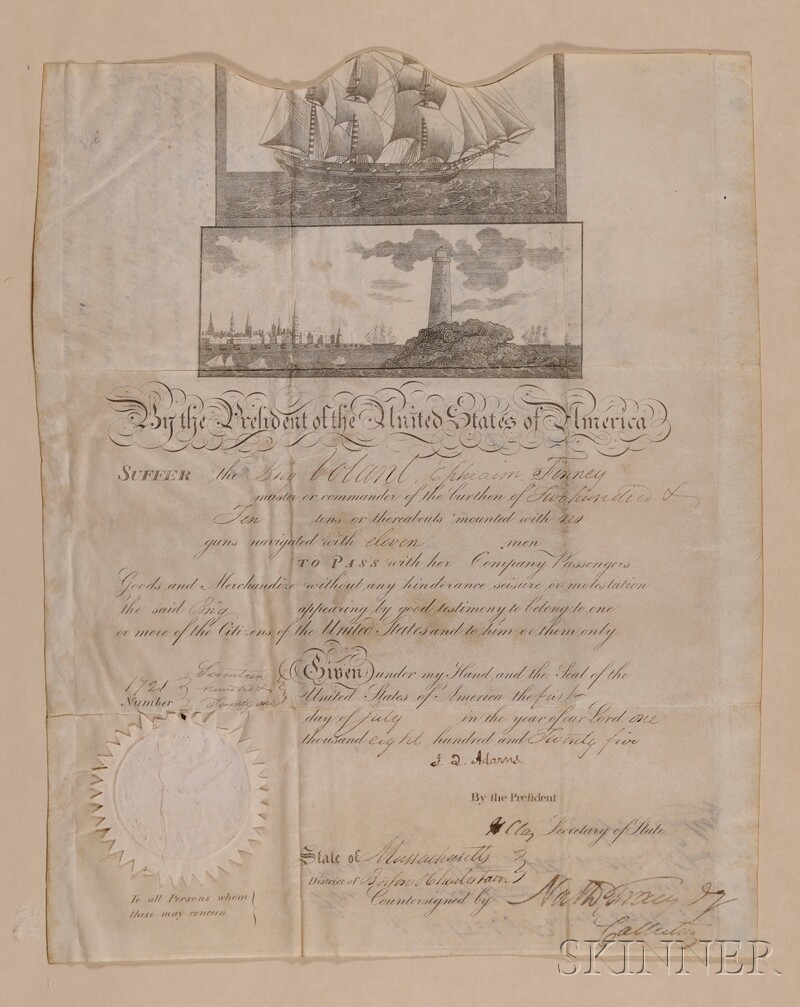 By the President of the United States of America
SUFFER the Brig Volant, Ephraim Tenney
master or commander of the burthen of Two hundred &
Ten tons or thereabouts mounted with no
guns navigated with eleven men
TO PASS with her Company Passengers
Goods and Merchandize without any hinderance seisure or molestation
the said Brig appearing by good testimony to belong to one
or more of the Citizens of the United States and to him or them only
1721 Seventeen
hundred &
Number Twenty one
Given under my Hand and the Seal of the
United States of America the first
day of July in the year of our Lord one
thousand eight hundred and Twenty five
J. Q. Adams.
By the President
H Clay Secretary of State
State of Massachusetts
District of Boston & Charlestown
Countersigned by
To all Persons whom
these may concern
SKINNER